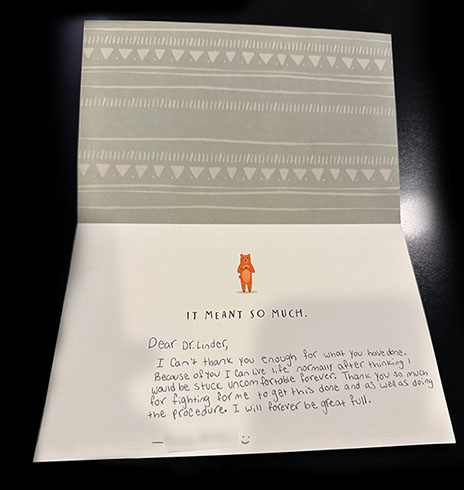 IT MEANT SO MUCH.
Dear Dr. Linder,
I Can't thank you enough for what you have done.
Because of you I can live life normally after thinking I
would be stuck uncomfortable forever. Thank you so much
for fighting for me to get this done and as well as doing
the procedure. I will forever be great full.
— :)